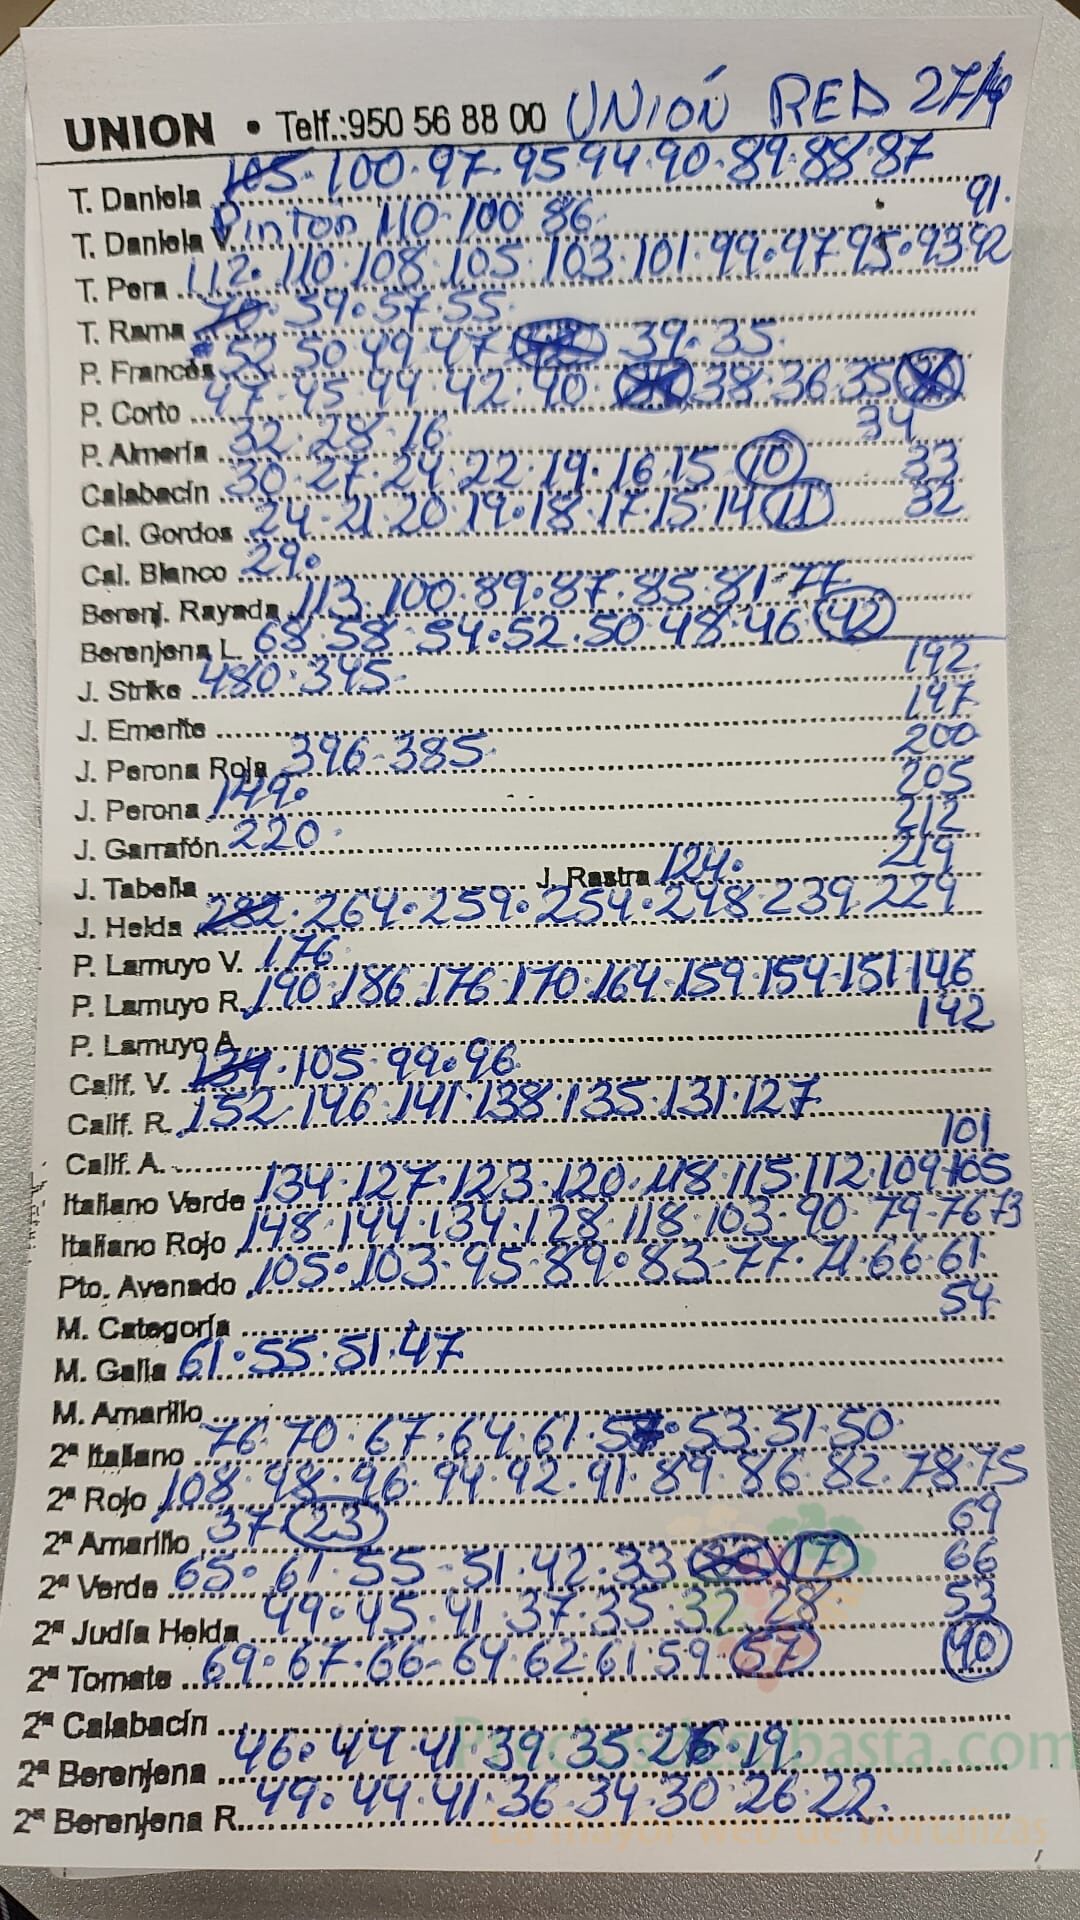 UNION • Telf.:950 56 88 00 UNIÓN RED 27/4
T. Daniela 105·100·97·95·94·90·89·88·87
91·
T. Daniela V. Pinton 110·100 86·
T. Pera 112·110·108·105·103·101·99·97·95·93·92
T. Rama 70·59·57·55·
P. Francés 52·50·49·47 39·35
P. Corto 47·45·44·42·40· 38·36·35
34
P. Almería 32·28·16
Calabacín 30·27·24·22·19·16·15 10 33
Cal. Gordos 24·21·20·19·18·17·15·14 11 32
Cal. Blanco 29·
Berenj. Rayada 113·100·89·87·85·81·77
Berenjena L. 68·58·54·52·50·48·46 42
J. Strike 480·345· 192
J. Emerite 197
J. Perona Roja 396·385· 200
J. Perona 149· 205
J. Garrafón 220· 212
J. Tabella J. Rastra 124· 219
J. Helda 282·264·259·254·248·239·229
P. Lamuyo V. 176
P. Lamuyo R. 190·186·176·170·164·159·154·151·146
P. Lamuyo A. 142
Calif. V. 134·105·99·96
Calif. R. 152·146·141·138·135·131·127
Calif. A. 101
Italiano Verde 134·127·123·120·118·115·112·109·105
Italiano Rojo 148·144·134·128·118·103·90·79·76·73
Pto. Avenado 105·103·95·89·83·77·71·66·61·
M. Categoría 54·
M. Galia 61·55·51·47
M. Amarillo
2ª Italiano 76·70·67·64·61·57·53·51·50·
2ª Rojo 108·98·96·94·92·91·89·86·82·78·75
2ª Amarillo 37 23 69
2ª Verde 65·61·55·51·42·33 17 66
2ª Judía Helda 49·45·41·37·35·32·28· 53
2ª Tomate 69·67·66·64·62·61·59· 57 40
2ª Calabacín
2ª Berenjena 46·44·41·39·35·26·19·
2ª Berenjena R. 49·44·41·36·34·30·26·22·
Preciosdesubasta.com
La mayor web de hortalizas